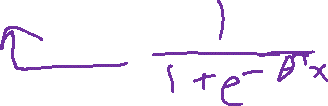 1
1 + e^{-θᵀx}